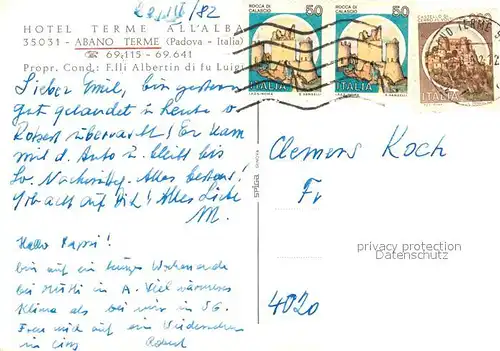 HOTEL TERME ALL'ALBA
35031 - ABANO TERME (Padova - Italia)
☎ 69.115 - 69.641
Propr. Cond.: F.lli Albertin di fu Luigi
Lieber Emil, bin gestern
gut gelandet u. heute v.
Robert überrascht! Er kam
mit d. Auto u. bleibt bis
So. Nachmittag. Alles bestens!
Gib acht auf Dich! Alles Liebe
M.
Hallo Pappi!
bin auf ein kurzes Wochenende
bei Mutti in A. Viel wärmeres
Klima als bei wir in SG.
Freu mich auf ein Wiedersehen
in
Robert
spiga
ROCCA DI CALASCIO
50
ITALIA
ROCCA DI CALASCIO
50
ITALIA
ITALIA
Clemens Koch
Fr
4020
privacy protection
Datenschutz